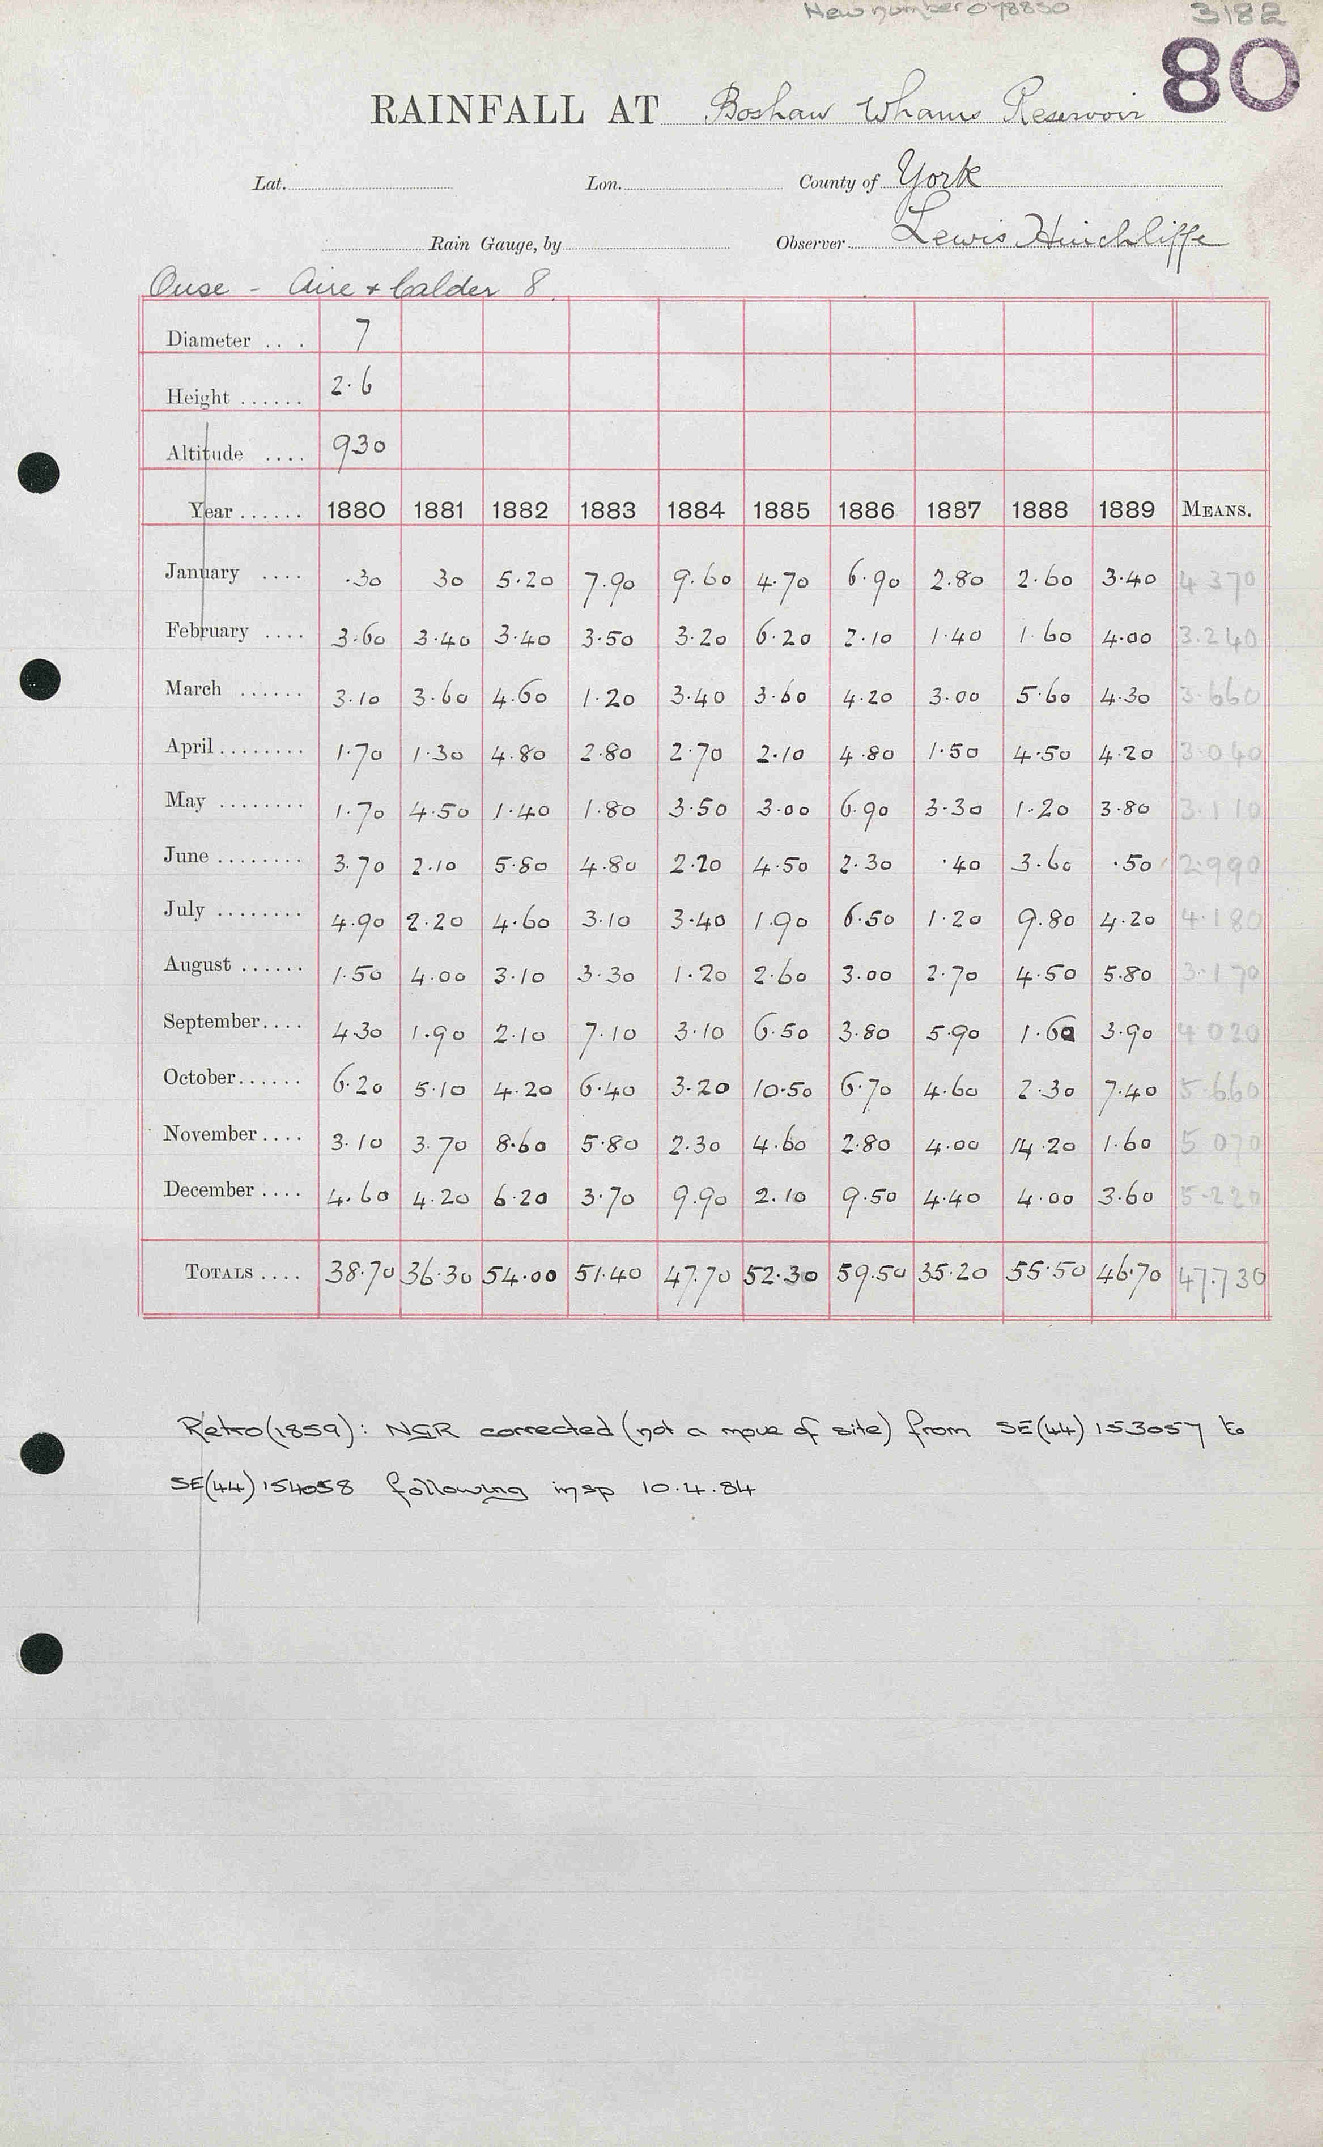 New number 078850 3182
80
RAINFALL AT Boshaw Whams Reservoir
Lat. Lon. County of York
Rain Gauge, by Observer Lewis Hinchliffe
Ouse - Aire & Calder 8.
Diameter ... 7
Height ...... 2.6
Altitude .... 930
Year ...... 1880 1881 1882 1883 1884 1885 1886 1887 1888 1889 MEANS.
January .... .30 30 5.20 7.90 9.60 4.70 6.90 2.80 2.60 3.40 4 370
February .... 3.60 3.40 3.40 3.50 3.20 6.20 2.10 1.40 1.60 4.00 3.240
March ...... 3.10 3.60 4.60 1.20 3.40 3.60 4.20 3.00 5.60 4.30 3.660
April ........ 1.70 1.30 4.80 2.80 2.70 2.10 4.80 1.50 4.50 4.20 3.040
May ........ 1.70 4.50 1.40 1.80 3.50 3.00 6.90 3.30 1.20 3.80 3.110
June ........ 3.70 2.10 5.80 4.80 2.20 4.50 2.30 .40 3.60 .50 2.990
July ........ 4.90 2.20 4.60 3.10 3.40 1.90 6.50 1.20 9.80 4.20 4.180
August ...... 1.50 4.00 3.10 3.30 1.20 2.60 3.00 2.70 4.50 5.80 3.170
September .... 4.30 1.90 2.10 7.10 3.10 6.50 3.80 5.90 1.60 3.90 4 020
October ...... 6.20 5.10 4.20 6.40 3.20 10.50 6.70 4.60 2.30 7.40 5.660
November .... 3.10 3.70 8.60 5.80 2.30 4.60 2.80 4.00 14.20 1.60 5 070
December .... 4.60 4.20 6.20 3.70 9.90 2.10 9.50 4.40 4.00 3.60 5.220
TOTALS .... 38.70 36.30 54.00 51.40 47.70 52.30 59.50 35.20 55.50 46.70 47.730
Retro (1859): NGR corrected (not a move of site) from SE(44) 153057 to
SE(44) 154058 following insp 10.4.84